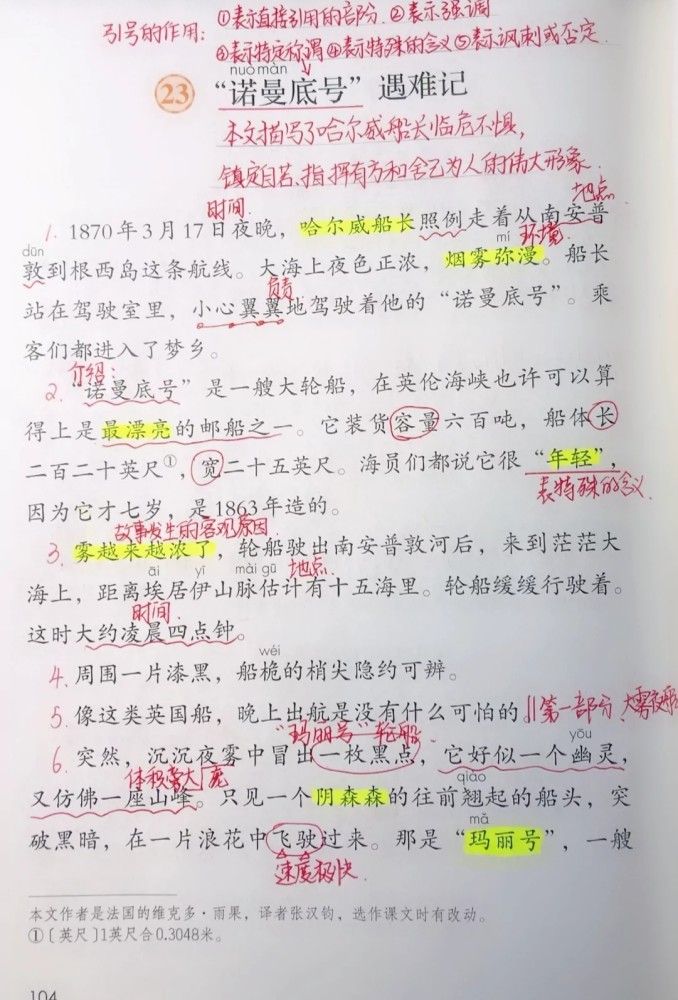 引号的作用：①表示直接引用的部分．②表示强调
③表示特定称谓④表示特殊的含义⑤表示讽刺或否定．
nuò màn
23 “诺曼底号”遇难记
本文描写了哈尔威船长临危不惧，
镇定自若、指挥有方和舍己为人的伟大形象．
时间． 地点
1. 1870年3月17日夜晚，哈尔威船长照例走着从南安普
dūn mí 环境．
敦到根西岛这条航线。大海上夜色正浓，烟雾弥漫。船长
负责
站在驾驶室里，小心翼翼地驾驶着他的“诺曼底号”。乘
客们都进入了梦乡。
介绍：
2. “诺曼底号”是一艘大轮船，在英伦海峡也许可以算
得上是最漂亮的邮船之一。它装货容量六百吨，船体长
二百二十英尺①，宽二十五英尺。海员们都说它很“年轻”，
表特殊的含义．
因为它才七岁，是1863年造的。
故事发生的客观原因
3. 雾越来越浓了，轮船驶出南安普敦河后，来到茫茫大
āi yī mài gū 地点．
海上，距离埃居伊山脉估计有十五海里。轮船缓缓行驶着。
时间．
这时大约凌晨四点钟。
wéi
4. 周围一片漆黑，船桅的梢尖隐约可辨。
5. 像这类英国船，晚上出航是没有什么可怕的。‖第一部分、大雾夜航
“玛丽号”轮船． yōu
6. 突然，沉沉夜雾中冒出一枚黑点，它好似一个幽灵，
体积庞大 qiào
又仿佛一座山峰。只见一个阴森森的往前翘起的船头，突
mǎ
破黑暗，在一片浪花中飞驶过来。那是“玛丽号”，一艘
速度极快．
本文作者是法国的维克多·雨果，译者张汉钧，选作课文时有改动。
①〔英尺〕1英尺合0.3048米。
104